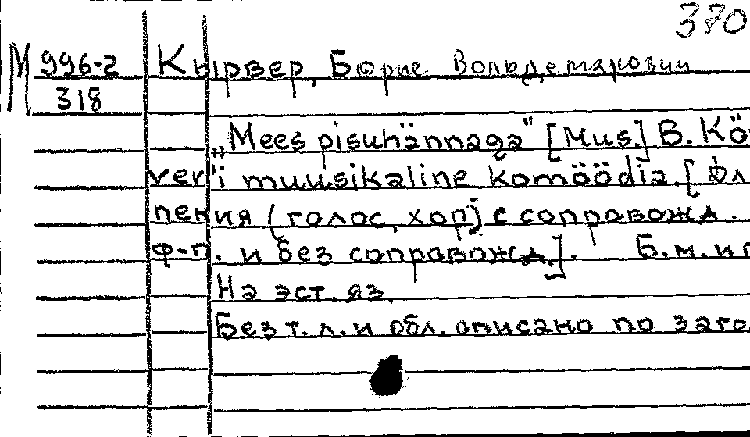 370
М 996-2 Кырвер, Борис Вольдемарович
318
„Mees pisuhännaga" [Mus.] B. Kõ
ver'i muusikaline komöödia. [Для
пения (голос, хор) с сопровожд.
ф-п. и без сопровожд.]. Б.м. и г
На эст. яз.
Без т. л. и обл. описано по заго